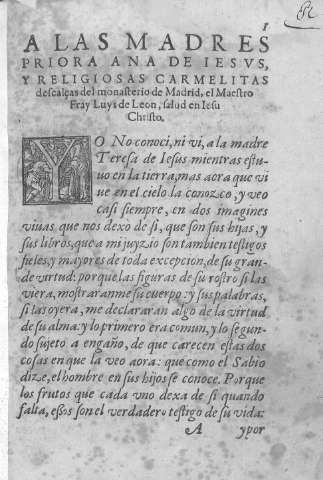 1
A LAS MADRES
PRIORA ANA DE IESVS,
Y RELIGIOSAS CARMELITAS
descalças del monasterio de Madrid, el Maestro
Fray Luys de Leon, salud en Iesu
Christo.
YO No conoci, ni vi, a la madre
Teresa de Iesus mientras estu-
uo en la tierra, mas aora que vi
ue en el cielo la conozco, y veo
casi siempre, en dos imagines
viuas que nos dexo de si, que son sus hijas, y
sus libros, que a mi juyzio son tambien testigos
fieles, y mayores de toda excepcion, de su gran-
de virtud: porque las figuras de su rostro si las
viera, mostraranme su cuerpo: y sus palabras,
si las oyera, me declararan algo de la virtud
de su alma: y lo primero era comun, y lo segun-
do sujeto a engaño, de que carecen estas dos
cosas en que la veo aora: que como el Sabio
dize, el hombre en sus hijos se conoce. Porque
los frutos que cada vno dexa de si quando
falta, essos son el verdadero testigo de su vida:
A ypor